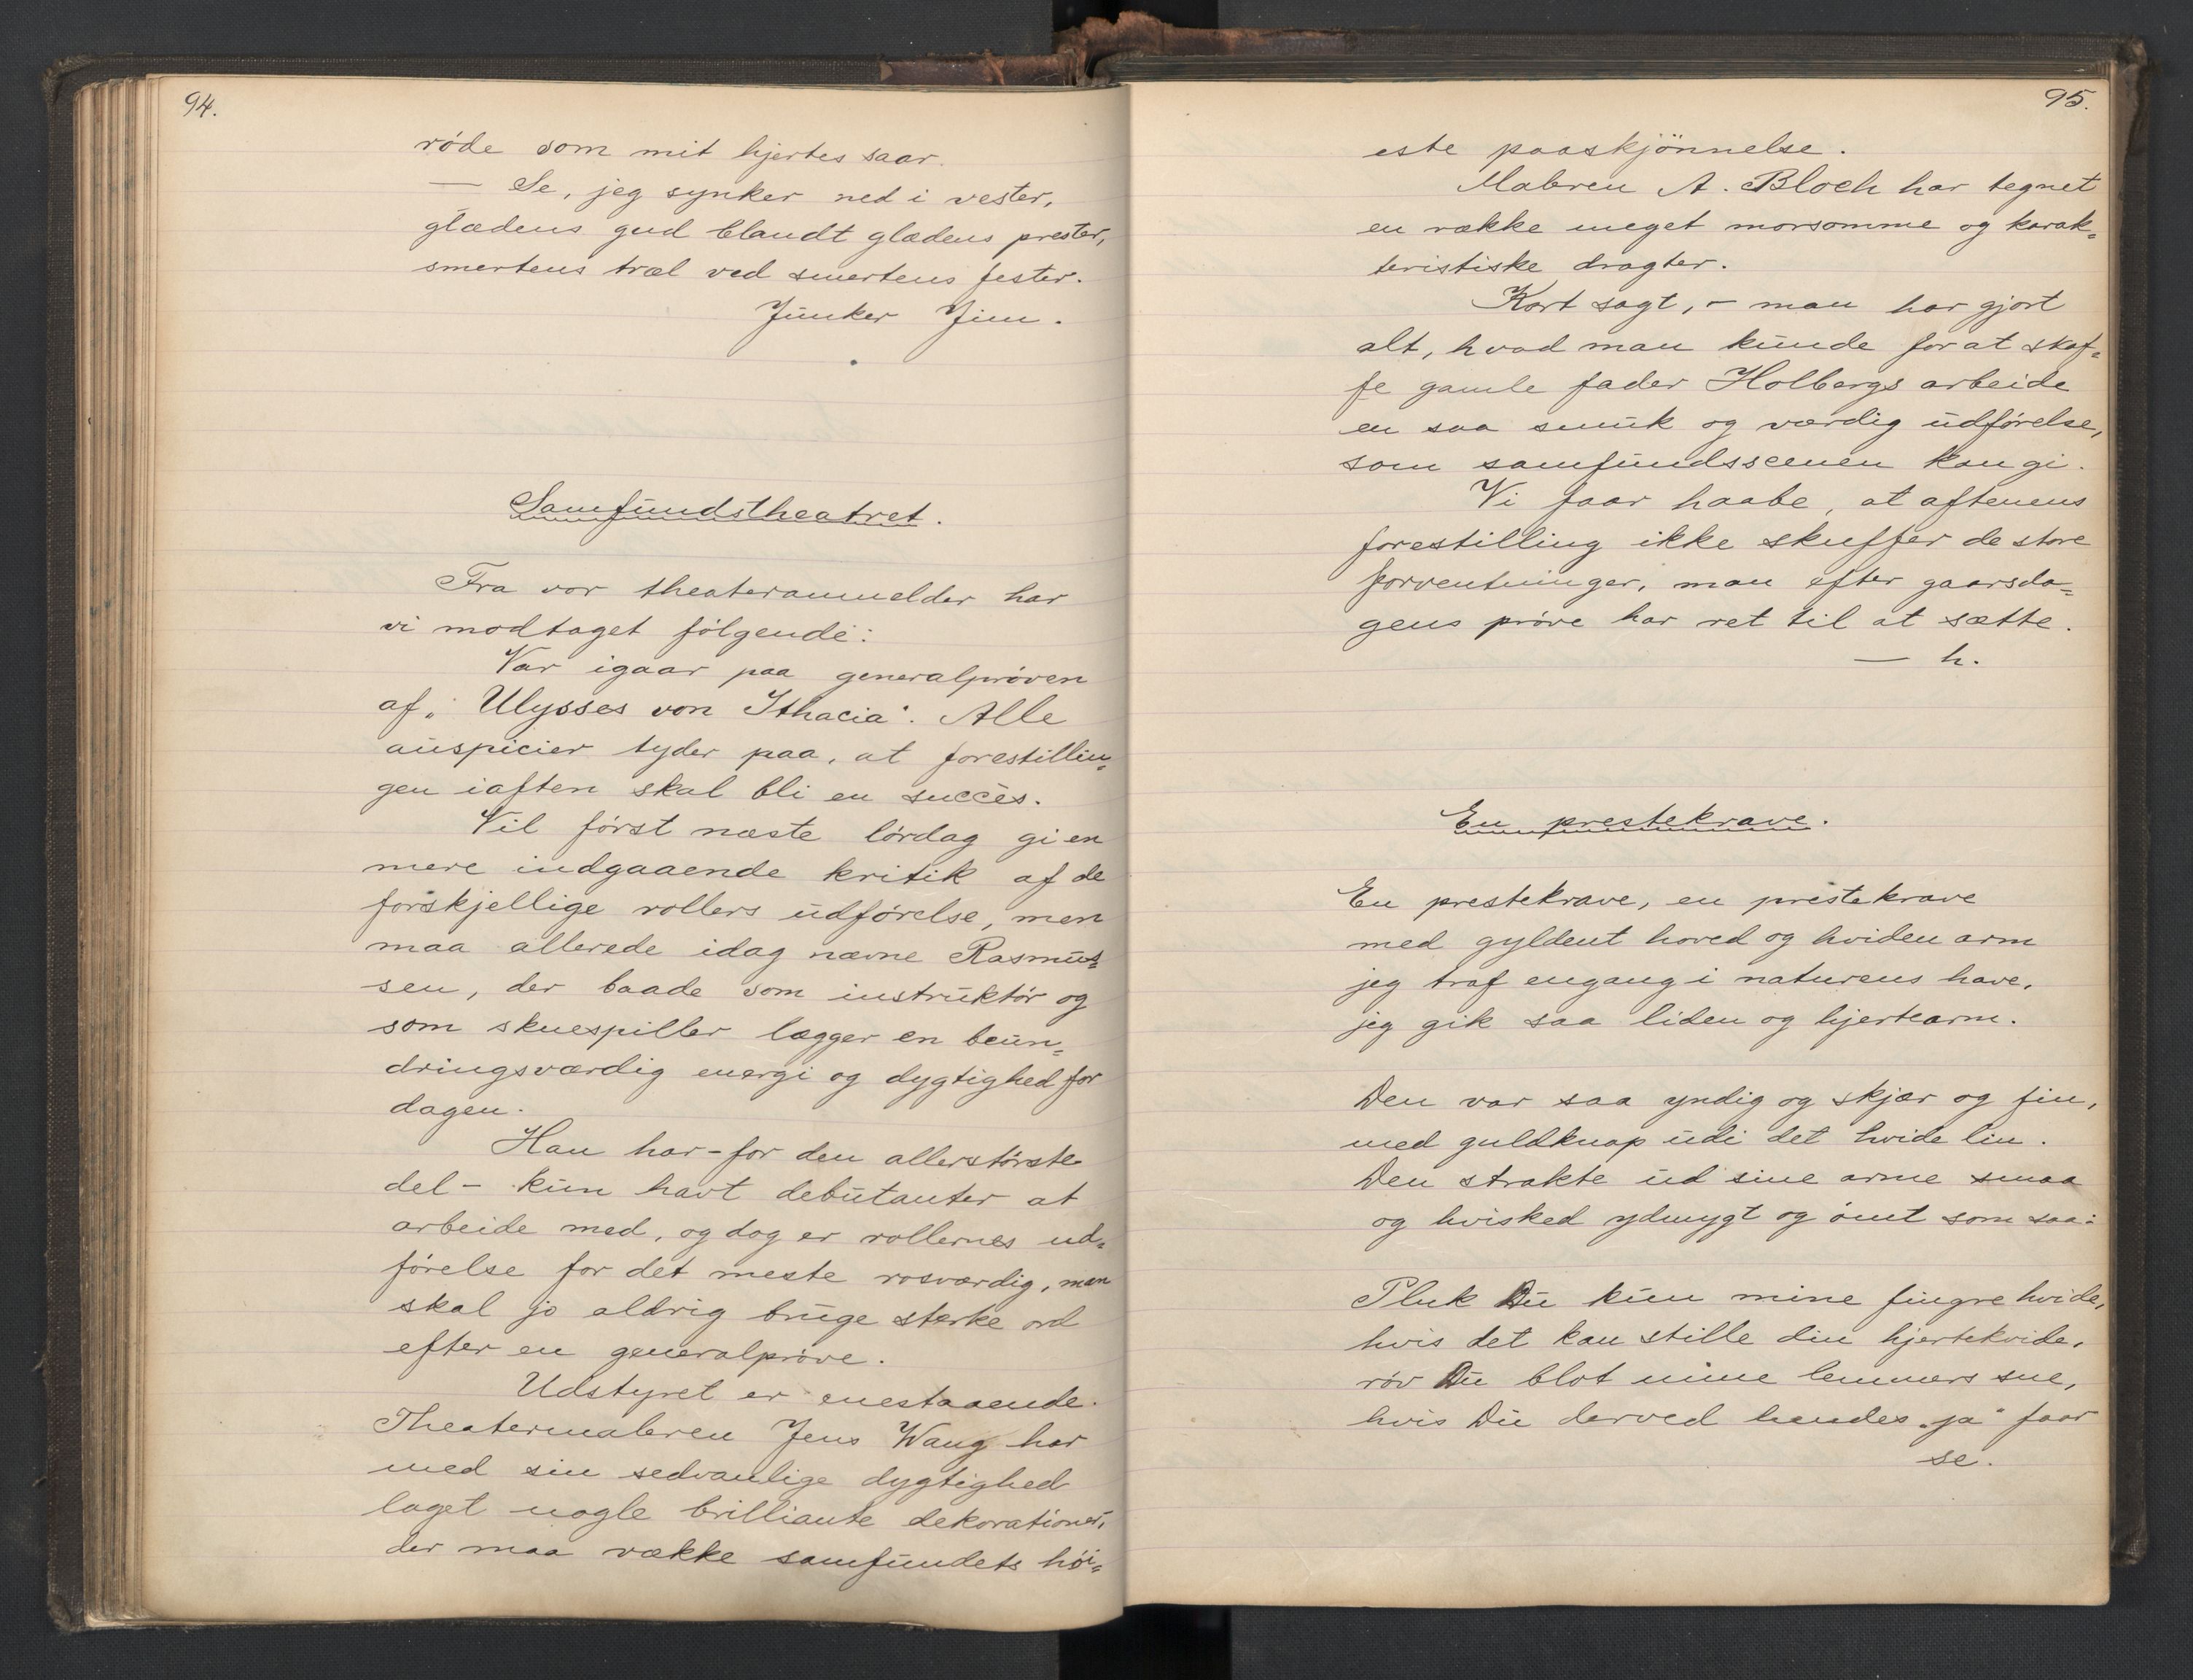 94.
röde som mit hjertes saar.
— Se, jeg synker ned i vester,
glædens gud blandt glædens prester,
smertens træl ved smertens fester.
Junker Jim.
Samfundstheatret.
Fra vor theateranmelder har
vi modtaget følgende:
Var igaar paa generalprøven
af „Ulysses von Ithacia“. Alle
auspicier tyder paa, at forestillin=
gen iaften skal bli en succès.
Vil først næste lørdag gi en
mere indgaaende kritik af de
forskjellige rollers udførelse, men
maa allerede idag nævne Rasmus=
sen, der baade som instruktør og
som skuespiller lægger en beun=
dringsværdig energi og dygtighed for
dagen.
Han har – for den allerstørste
del – kun havt debutanter at
arbeide med, og dog er rollernes ud=
førelse for det meste rosværdig, man
skal jo aldrig bruge sterke ord
efter en generalprøve.
Udstyret er enestaaende.
Theatermaleren Jens Wang har
med sin sedvanlige dygtighed
laget nogle brilliante dekorationer,
der maa vække samfundets höi=
95.
este paaskjönnelse.
Maleren A. Bloch har tegnet
en række meget morsomme og karak=
teristiske dragter.
Kort sagt, – man har gjort
alt, hvad man kunde for at skaf=
fe gamle fader Holbergs arbeide
en saa smuk og værdig udførelse,
som samfundsscenen kan gi.
Vi faar haabe, at aftenens
forestilling ikke skuffer de store
forventninger, man efter gaarsda=
gens prøve har ret til at sætte.
— h.
En prestekrave.
En prestekrave, en prestekrave
med gyldent hoved og hviden arm
jeg traf engang i naturens have,
jeg gik saa liden og hjertearm.
Den var saa yndig og skjær og fin,
med guldknap udi det hvide lin.
Den strakte ud sine arme smaa
og hvisked ydmygt og ömt som saa:
Pluk Du kun mine fingre hvide,
hvis det kan stille din hjertekvide,
röv Du blot mine lemmers sne,
hvis Du derved hendes „ja“ faar
se.